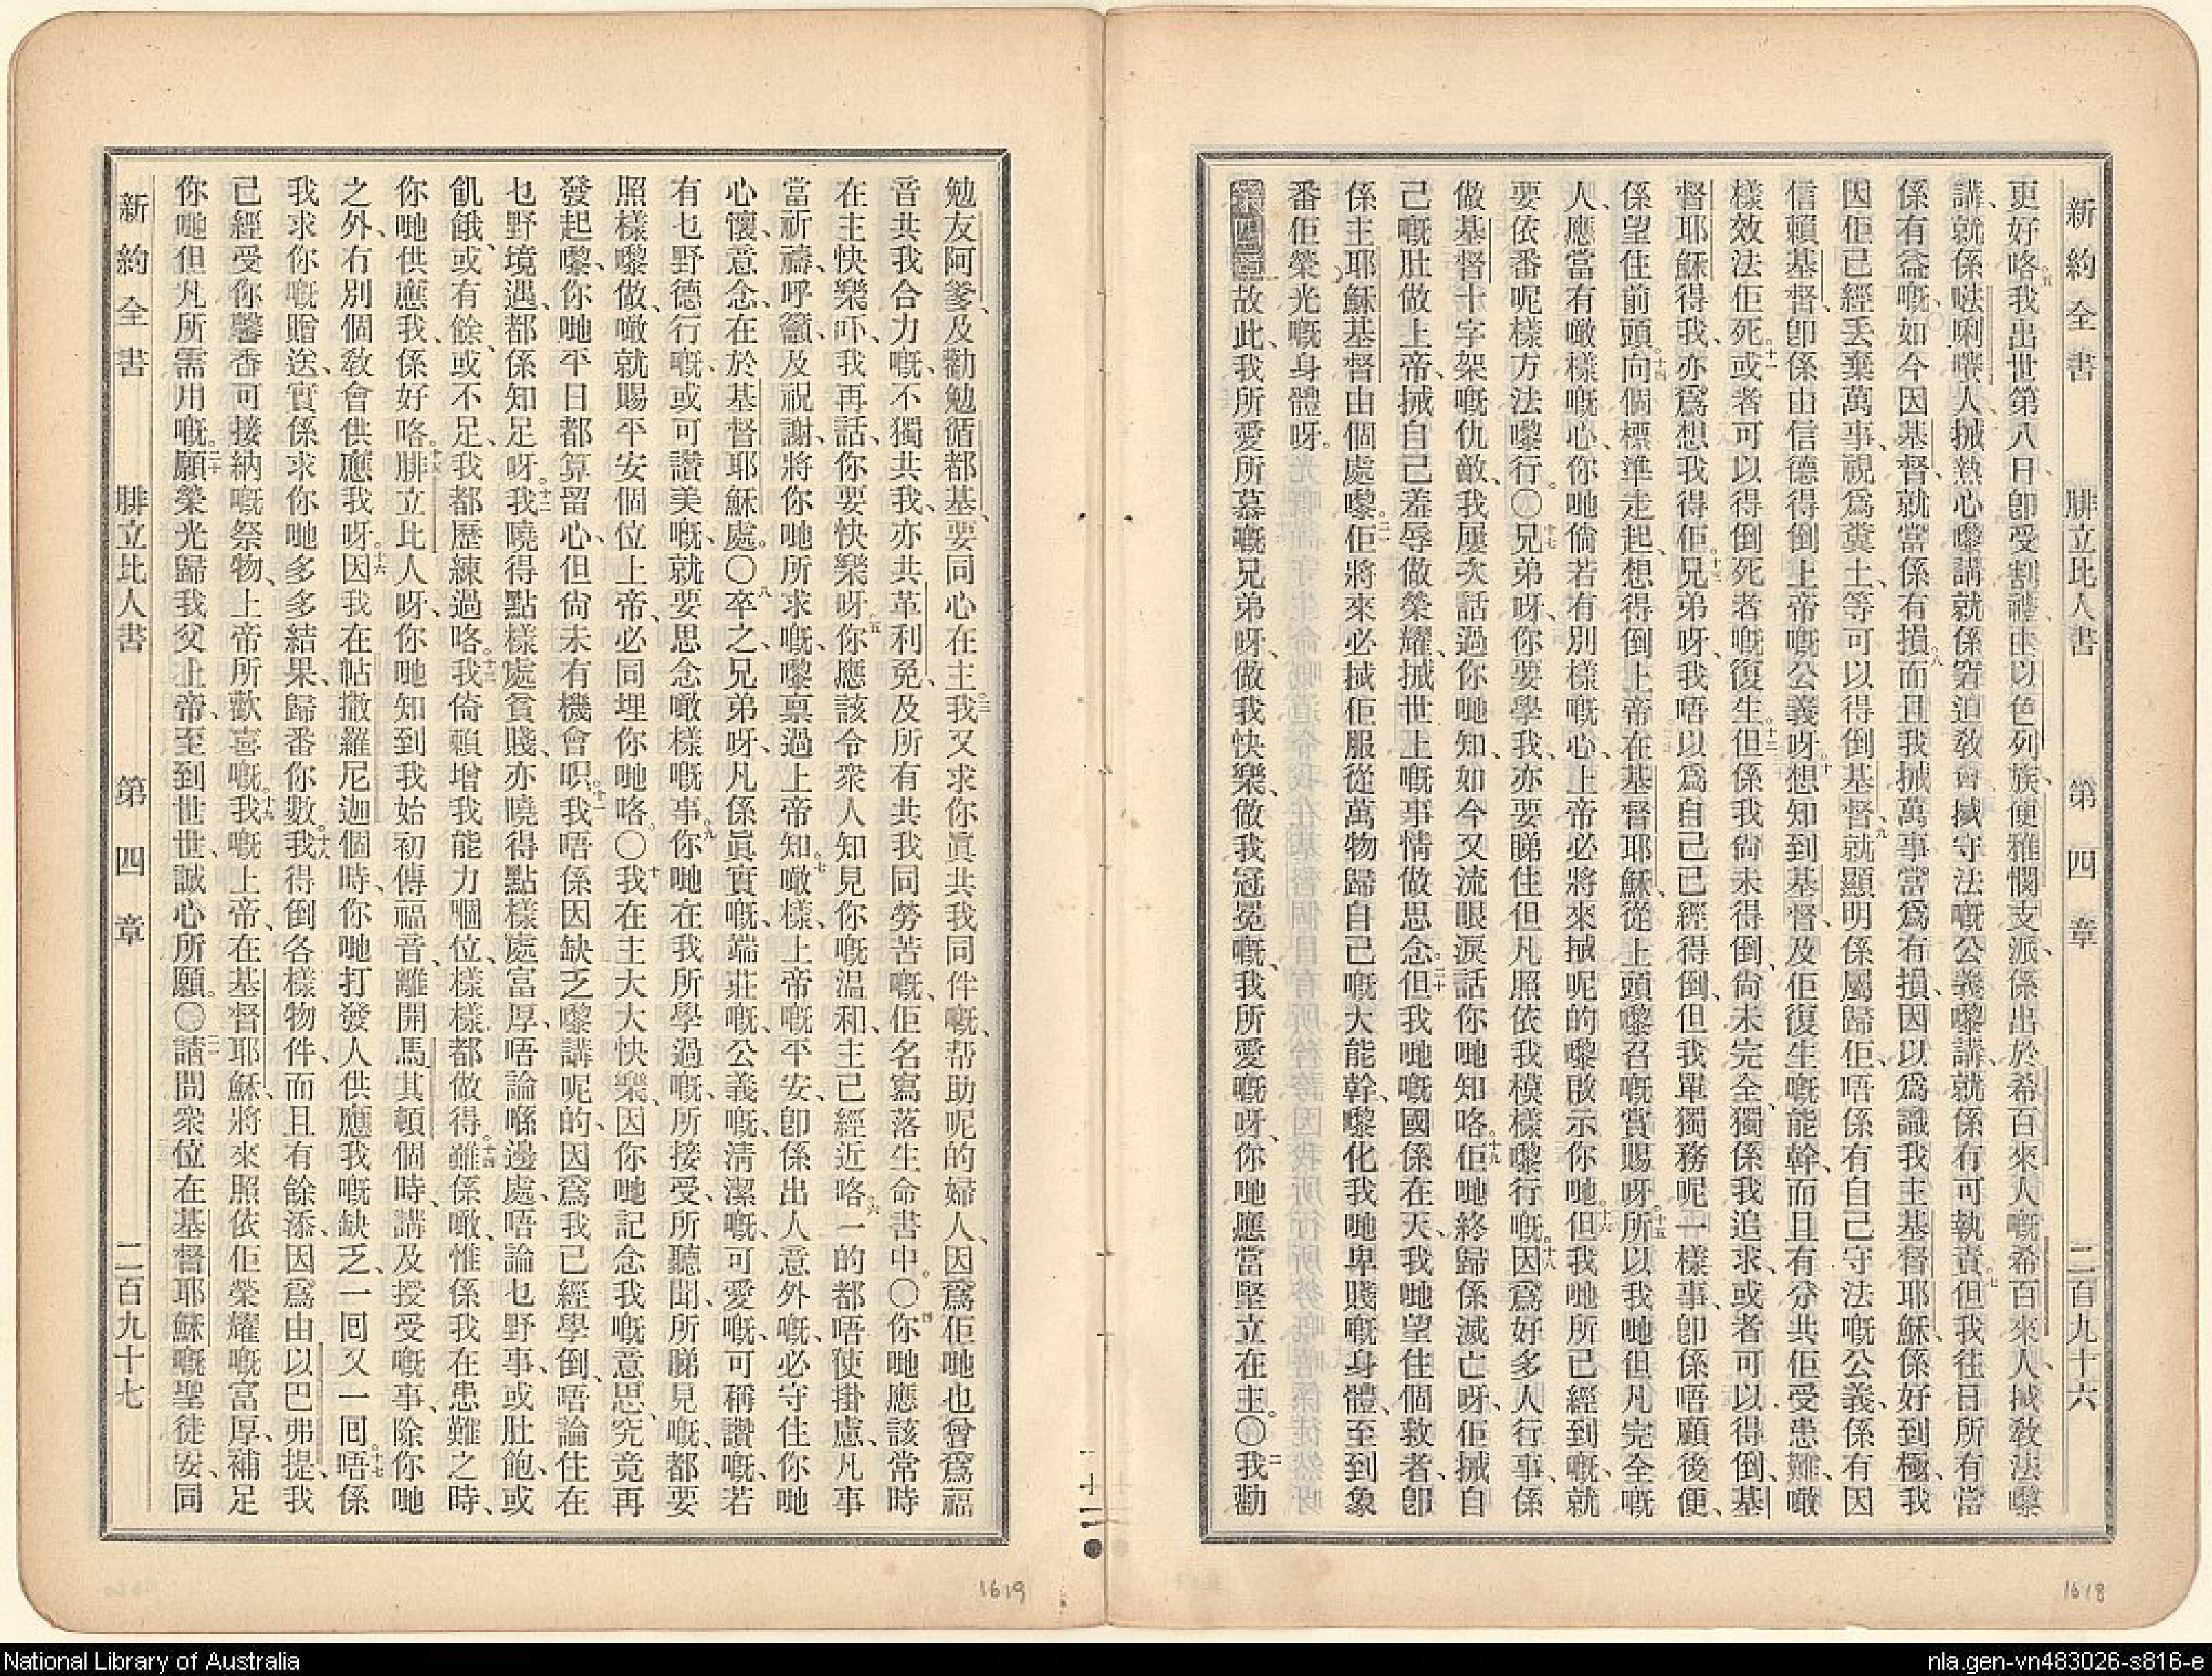 新約全書 腓立比人書 第四章 二百九十六
更好咯。五我出世第八日、卽受割禮、由以色列族、便雅憫支派、係出於希百來人嘅希百來人、搣敎法嚟
講、就係𠵽唎㘔人、搣熱心嚟講、就係窘迫敎會、搣守法嘅公義嚟講、就係冇可執責。七但我往日所有當
係有益嘅、如今因基督、就當係有損。八而且我搣萬事當爲有損、因以爲識我主基督耶穌、係好到極、我
因佢已經丢棄萬事、視爲糞土、等可以得倒基督、九就顯明係屬歸佢、唔係有自己守法嘅公義、係有因
信賴基督、卽係由信德得倒上帝嘅公義呀。十想知到基督、及佢復生嘅能幹、而且有分共佢受患難、噉
樣效法佢死。十一或者可以得倒死者嘅復生。十二但係我尙未得倒、尙未完全、獨係我追求、或者可以得倒、基
督耶穌得我、亦爲想我得佢。十三兄弟呀、我唔以爲自己已經得倒、但我單獨務呢一樣事、卽係唔顧後便、
係望住前頭。十四向個標準走起、想得倒上帝在基督耶穌、從上頭嚟召嘅賞賜呀。十五所以我哋但凡完全嘅
人、應當有噉樣嘅心、你哋倘若有別樣嘅心、上帝必將來搣呢的嚟啟示你哋。十六但我哋所已經到嘅、就
要依番呢樣方法嚟行。〇十七兄弟呀、你要學我、亦要睇住但凡照依我模樣嚟行嘅。十八因爲好多人行事、係
做基督十字架嘅仇敵、我屢次話過你哋知、如今又流眼淚話你哋知咯。十九佢哋終歸係滅亡呀、佢搣自
己嘅肚做上帝、搣自己羞辱做榮耀、搣世上嘅事情做思念。二十但我哋嘅國係在天、我哋望住個救者、卽
係主耶穌基督由個處嚟。二一佢將來必搣佢服從萬物歸自己嘅大能幹、嚟化我哋卑賤嘅身體、至到象
番佢榮光嘅身體呀。
第四章一故此、我所愛所慕嘅兄弟呀、做我快樂、做我冠冕嘅、我所愛嘅呀、你哋應當堅立在主。〇二我勸
勉友阿爹、及勸勉循都基、要同心在主。三我又求你眞共我同伴嘅、帮助呢的婦人、因爲佢哋也曾爲福
音共我合力嘅、不獨共我、亦共革利免、及所有共我同勞苦嘅、佢名寫落生命書中。〇四你哋應該常時
在主快樂吓、我再話、你要快樂呀。五你應該令衆人知見你嘅温和、主已經近咯。六一的都唔使掛慮、凡事
當祈禱、呼籲、及祝謝、將你哋所求嘅、嚟禀過上帝知。七噉樣、上帝嘅平安、卽係出人意外嘅、必守住你哋
心懷、意念、在於基督耶穌處。〇八卒之、兄弟呀、凡係眞實嘅、端莊嘅、公義嘅、淸潔嘅、可愛嘅、可稱讚嘅、若
有乜野德行嘅、或可讚美嘅、就要思念噉樣嘅事。九你哋在我所學過嘅、所接受、所聽聞、所睇見嘅、都要
照樣嚟做、噉就賜平安個位上帝、必同埋你哋咯。〇十我在主大大快樂、因你哋記念我嘅意思、究竟再
發起嚟、你哋平日都算留心、但尙未有機會𠺢。十一我唔係因缺乏嚟講呢的、因爲我已經學倒、唔論住在
乜野境遇、都係知足呀。十二我曉得點樣處貧賤、亦曉得點樣處富厚、唔論喺邊處、唔論乜野事、或肚飽、或
飢餓、或有餘、或不足、我都歷練過咯。十三我倚賴增我能力嗰位、樣樣都做得。十四雖係噉、惟係我在患難之時、
你哋供應我、係好咯。十五腓立比人呀、你哋知到我始初傳福音、離開馬其頓個時、講及授受嘅事、除你哋
之外、冇別個敎會供應我呀。十六因我在帖撒羅尼迦個時、你哋打發人供應我嘅缺乏、一囘又一囘。十七唔係
我求你嘅贈送、實係求你哋多多結果、歸番你數。十八我得倒各樣物件、而且有餘添、因爲由以巴弗提、我
已經受你馨香可接納嘅祭物、上帝所歡喜嘅。十九我嘅上帝、在基督耶穌、將來照依佢榮耀嘅富厚、補足
你哋但凡所需用嘅。二十願榮光歸我父上帝、至到世世、誠心所願。〇二一請問衆位在基督耶穌嘅聖徒安、同
新約全書 腓立比人書 第四章 二百九十七
二十一
1619
1618
National Library of Australia
nla.gen-vn483026-s816-e